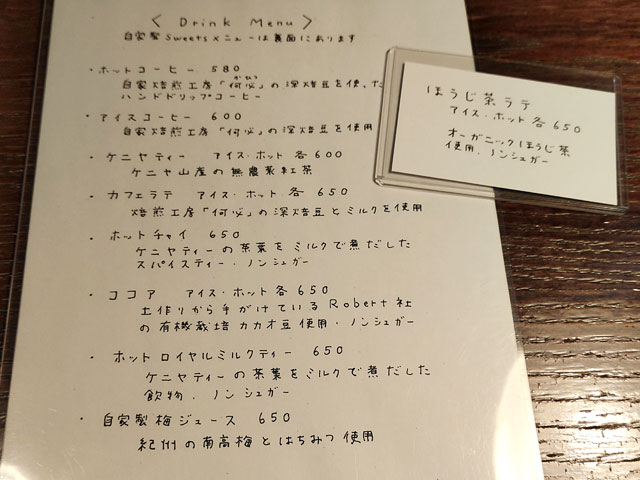 < Drink Menu >
自家製Sweetsメニューは裏面にあります
・ホットコーヒー 580
自家焙煎工房「何必」の深焙豆を使った
かひつ
ハンドドリップコーヒー
・アイスコーヒー 600
自家焙煎工房「何必」の深焙豆を使用
・ケニヤティー アイス・ホット 各600
ケニヤ山産の無農薬紅茶
・カフェラテ アイス・ホット 各 650
焙煎工房「何必」の深焙豆とミルクを使用
・ホットチャイ 650
ケニヤティーの茶葉をミルクで煮だした
スパイスティー・ノンシュガー
・ココア アイス・ホット 各650
土作りから手がけているRobert社
の有機栽培カカオ豆使用・ノンシュガー
・ホットロイヤルミルクティー 650
ケニヤティーの茶葉をミルクで煮だした
飲物、ノンシュガー
・自家製梅ジュース 650
紀州の南高梅とはちみつ使用
ほうじ茶ラテ
アイス・ホット 各650
オーガニックほうじ茶
使用、ノンシュガー